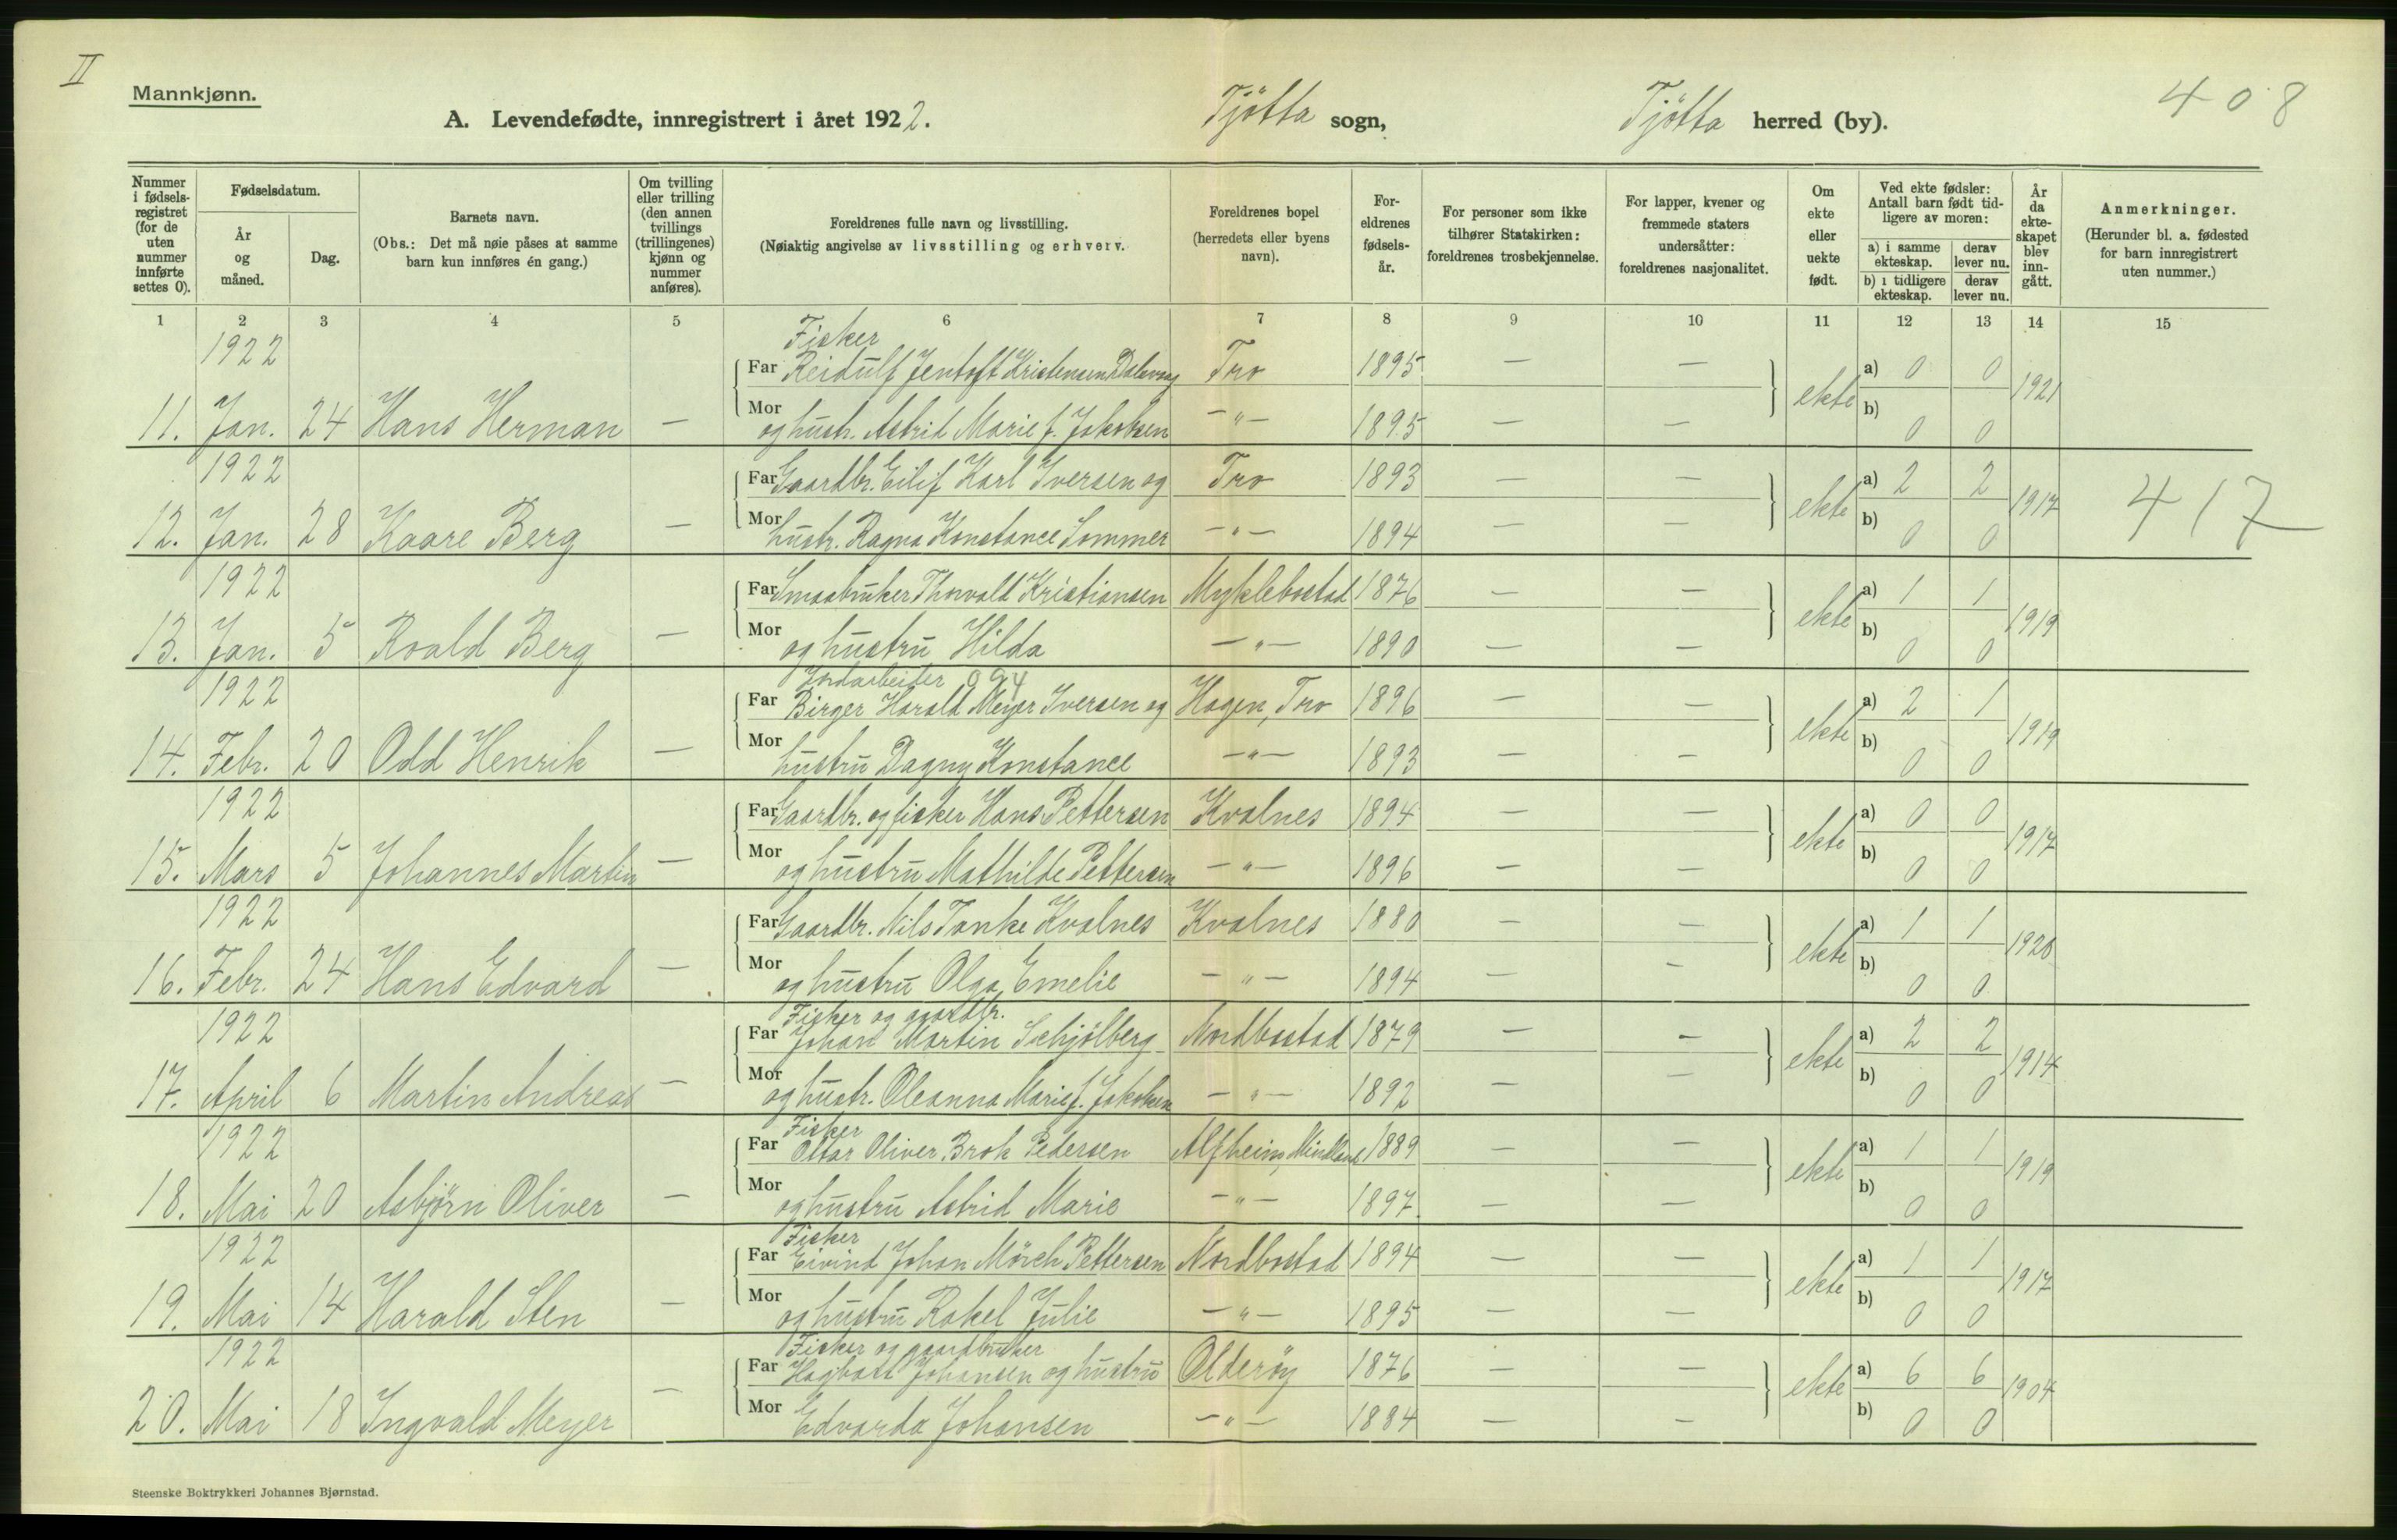 II
Mannkjønn.
A. Levendefødte, innregistrert i året 1922.
Tjøtta sogn,
Tjøtta herred (by).
408
Nummer i fødselsregistret (for de uten nummer innførte settes 0).
Fødselsdatum.
År og måned.
Dag.
Barnets navn.
(Obs.: Det må nøie påses at samme barn kun innføres én gang.)
Om tvilling eller trilling (den annen tvillings (trillingenes) kjønn og nummer anføres).
Foreldrenes fulle navn og livsstilling.
(Nøiaktig angivelse av livsstilling og erhverv.
Foreldrenes bopel (herredets eller byens navn).
Foreldrenes fødselsår.
For personer som ikke tilhører Statskirken: foreldrenes trosbekjennelse.
For lapper, kvener og fremmede staters undersåtter: foreldrenes nasjonalitet.
Om ekte eller uekte født.
Ved ekte fødsler: Antall barn født tidligere av moren:
a) i samme ekteskap.
derav lever nu.
b) i tidligere ekteskap.
derav lever nu.
År da ekteskapet blev inngått.
Anmerkninger.
(Herunder bl. a. fødested for barn innregistrert uten nummer.)
1 2 3 4 5 6 7 8 9 10 11 12 13 14 15
1922 Fisker
Far Reidulf Jentoft Kristensen Dalevaag Tro 1895 — — a) 0 0
11. Jan. 24 Hans Herman — ekte 1921
Mor og hustr. Astrid Marie f. Jakobsen — " — 1895 — — b) 0 0
1922 Far Gaardbr. Eilif Karl Iversen og Tro 1893 — — a) 2 2
12. Jan. 28 Kaare Berg — ekte 1917 417
Mor hustr. Ragna Konstance Sommer — " — 1894 — — b) 0 0
1922 Far Smaabruker Thorvald Kristiansen Myklebostad 1876 — — a) 1 1
13. Jan. 5 Roald Berg — ekte 1919
Mor og hustru Hilda — " — 1890 — — b) 0 0
1922 Jordarbeider 094
Far Birger Harald Meyer Iversen og Hagen, Tro 1896 — — a) 2 1
14. Febr. 20 Odd Henrik — ekte 1919
Mor hustru Dagny Konstance — " — 1893 — — b) 0 0
1922 Far Gaardbr. og fisker Hans Pettersen Kvalnes 1894 — — a) 0 0
15. Mars 5 Johannes Martin — ekte 1917
Mor og hustru Mathilde Pettersen — " — 1896 — — b) 0 0
1922 Far Gaardbr. Nils Tanke Kvalnes Kvalnes 1880 — — a) 1 1
16. Febr. 24 Hans Edvard — ekte 1920
Mor og hustru Olga Emelie — " — 1894 — — b) 0 0
1922 Fisker og gaardbr.
Far Johan Martin Schjølberg Nordbostad 1879 — — a) 2 2
17. April 6 Martin Andreas — ekte 1914
Mor og hustr. Oleanna Marie f. Jakobsen — " — 1892 — — b) 0 0
1922 Fisker
Far Ottar Oliver Brok Pedersen Alfheim, Mindland 1889 — — a) 1 1
18. Mai 20 Asbjörn Oliver — ekte 1919
Mor og hustru Astrid Marie — " — 1897 — — b) 0 0
1922 Fisker
Far Eivind Johan Mörch Pettersen Nordbostad 1894 — — a) 1 1
19. Mai 14 Harald Sten — ekte 1917
Mor og hustru Rakel Julie — " — 1895 — — b) 0 0
1922 Fisker og gaardbruker
Far Hagbart Johansen og hustru Olderöy 1876 — — a) 6 6
20. Mai 18 Ingvald Meyer — ekte 1904
Mor Edvarda Johansen — " — 1884 — — b) 0 0
Steenske Boktrykkeri Johannes Bjørnstad.